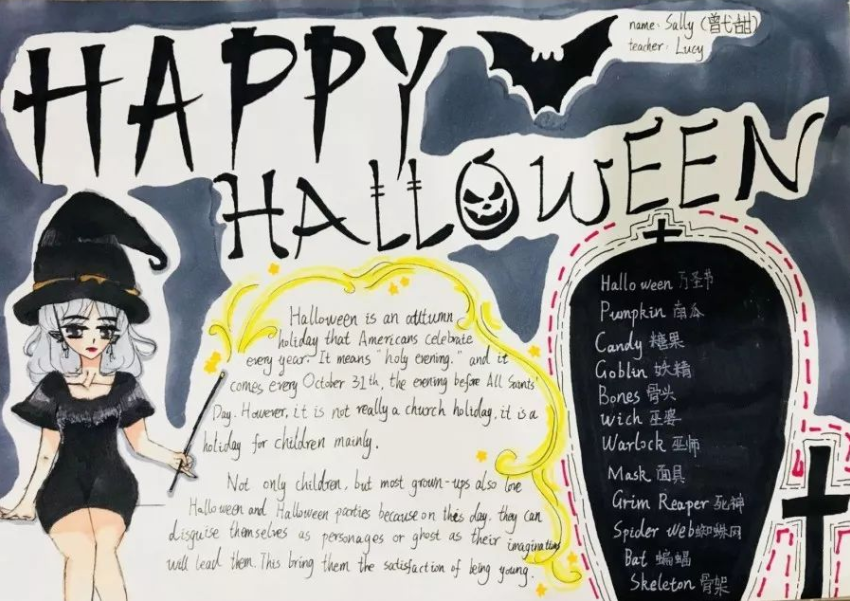 HAPPY
name: Sally (曾弋甜)
teacher: Lucy
HALLOWEEN
Halloween is an autumn
holiday that Americans celebrate
every year. It means "holy evening." and it
comes every October 31th, the evening before All Saints'
Day. However, it is not really a church holiday, it is a
holiday for children mainly.
Not only children, but most grown-ups also love
Halloween and Halloween parties because on this day, they can
disguise themselves as personages or ghost as their imaginations
will lead them. This bring them the satisfaction of being young.
Halloween 万圣节
Pumpkin 南瓜
Candy 糖果
Goblin 妖精
Bones 骨头
Wich 巫婆
Warlock 巫师
Mask 面具
Grim Reaper 死神
Spider Web 蜘蛛网
Bat 蝙蝠
Skeleton 骨架